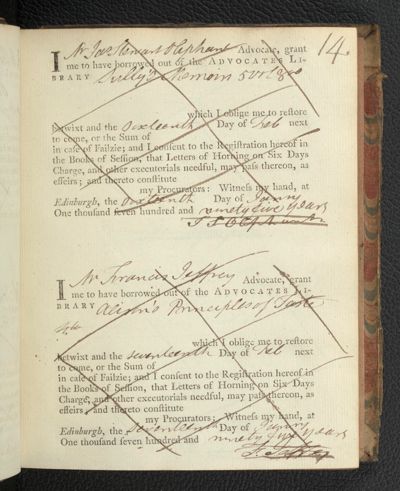 14.
I Mr Jas Stewart Oliphant Advocate, grant
me to have borrowed out of the ADVOCATES LI-
BRARY Sully's Memoirs 5 vol 8vo
which I oblige me to restore
betwixt and the Sixteenth Day of Feb next
to come, or the Sum of
in case of Failzie; and I consent to the Registration hereof in
the Books of Session, that Letters of Horning on Six Days
Charge, and other executorials needful, may pass thereon, as
effeirs; and thereto constitute
my Procurators: Witness my hand, at
Edinburgh, the Sixteenth Day of Janry
One thousand seven hundred and ninety five years
J S Oliphant
I Mr Francis Jeffrey Advocate, grant
me to have borrowed out of the ADVOCATES LI-
BRARY Alison's Principles of Taste
4to
which I oblige me to restore
betwixt and the Seventeenth Day of Feb next
to come, or the Sum of
in case of Failzie; and I consent to the Registration hereof in
the Books of Session, that Letters of Horning on Six Days
Charge, and other executorials needful, may pass thereon, as
effeirs; and thereto constitute
my Procurators: Witness my hand, at
Edinburgh, the Seventeenth Day of Janry
One thousand seven hundred and ninety five years
F. Jeffrey